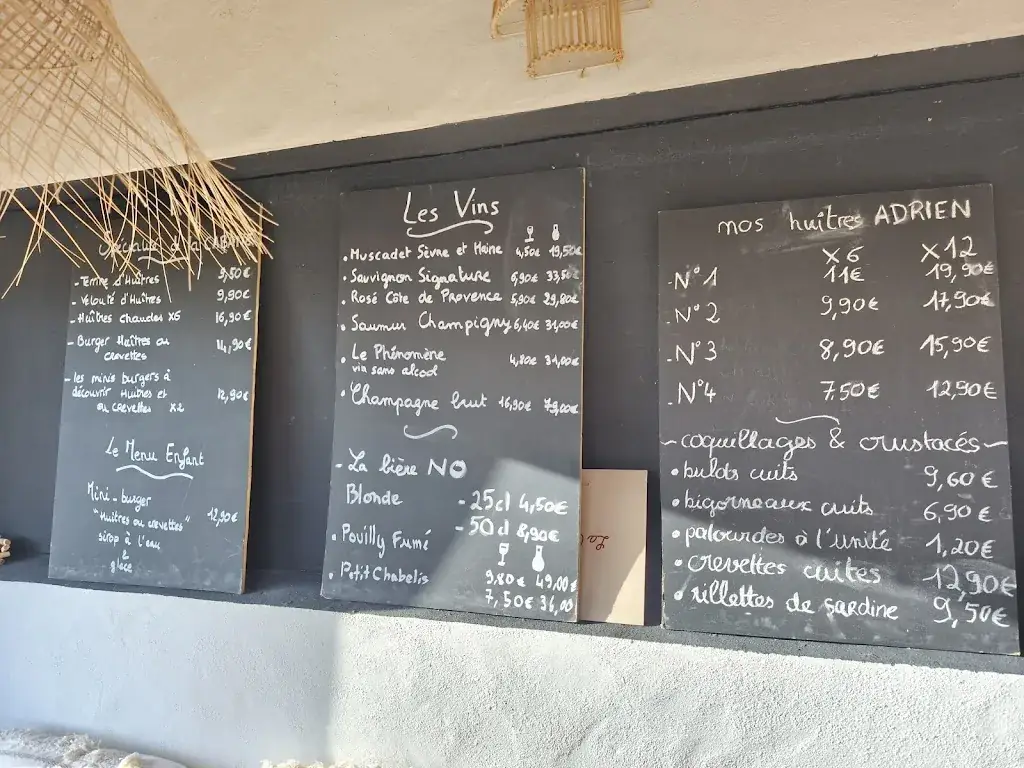 - Terrine d'Huîtres 9,50€
- Velouté d'Huîtres 9,90€
- Huîtres Chaudes X6 16,90€
- Burger Huîtres ou 14,90€
crevettes
- les minis burgers à
découvrir Huîtres et 12,90€
ou crevettes X2
Le Menu Enfant
Mini-burger
"Huîtres ou crevettes" 12,90€
sirop à l'eau
&
glace
Les Vins
• Muscadet Sèvne et Maine 4,50€ 19,50€
• Sauvignon Signature 6,90€ 33,50€
• Rosé Côte de Provence 5,90€ 29,80€
• Saumur Champigny 6,40€ 31,00€
• Le Phénomène 4,80€ 31,00€
vin sans alcool
• Champagne brut 16,90€ 79,00€
- La bière NO
Blonde - 25cl 4,50€
- 50cl 8,90€
• Pouilly Fumé
9,80€ 49,00€
• Petit Chabelis
7,50€ 36,00
nos huîtres ADRIEN
X6 X12
- N°1 11€ 19,90€
- N°2 9,90€ 17,90€
- N°3 8,90€ 15,90€
- N°4 7.50€ 12,90€
~ coquillages & crustacés ~
• bulots cuits 9,60€
• bigorneaux cuits 6,90€
• palourdes à l'unité 1,20€
• crevettes cuites 12,90€
• rillettes de sardine 9,50€